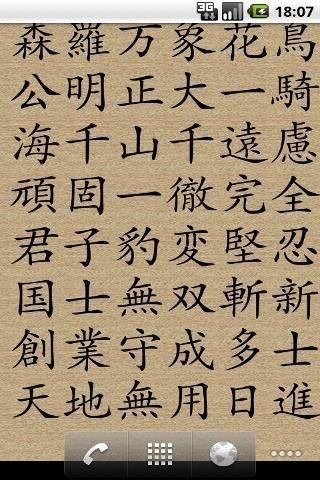 3G 18:07
森羅万象花鳥
公明正大一騎
海千山千遠慮
頑固一徹完全
君子豹変堅忍
国士無双斬新
創業守成多士
天地無用日進